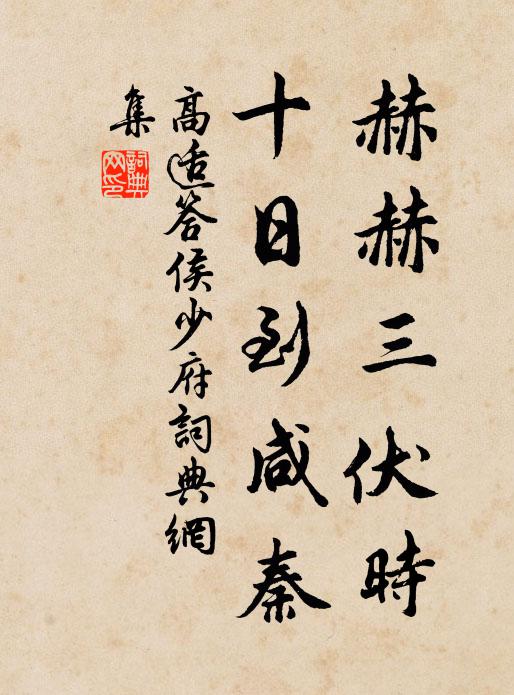 赫赫三伏時
十日到咸秦
高适答侯少府詞典網
集
詞典
网印